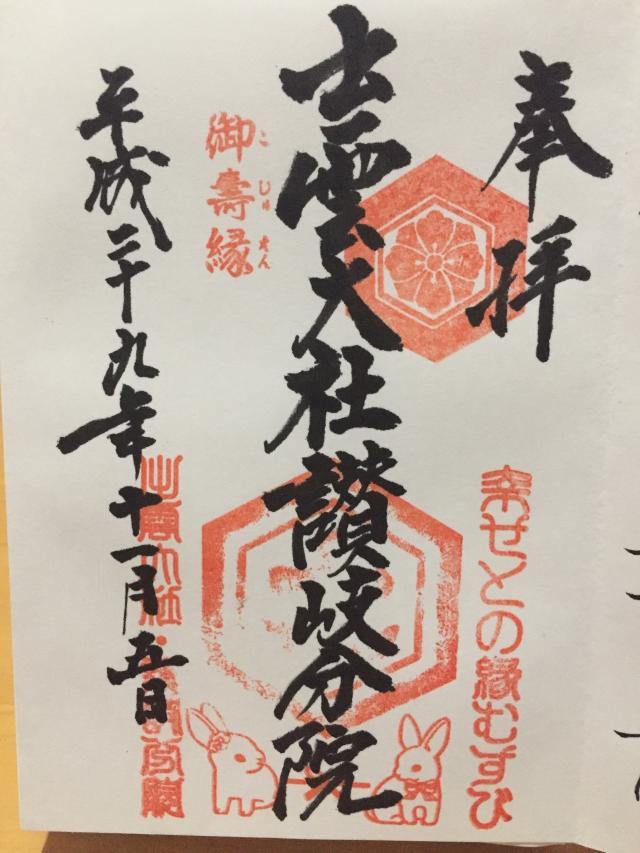 奉拝
幸せとの縁むすび
出雲大社讃岐分院
御壽縁
こじゅえん
平成二十九年十一月五日